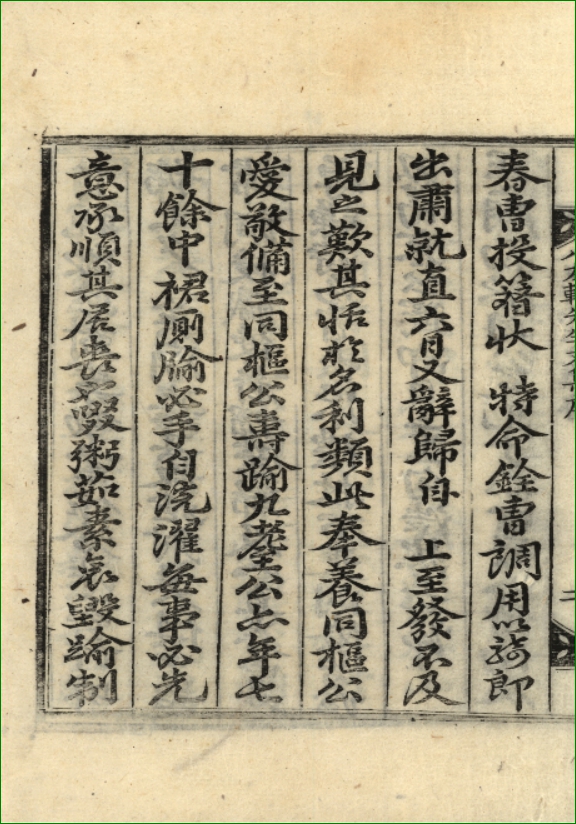 春曹投簪狀 特命銓曹調用以騎郎
出肅就直六日又辭歸自 上至發不及
見之歎其恬於名利類此奉養同樞公
愛敬備至同樞公壽踰九耋公亦年七
十餘中裙厠腧必手自洗濯每事必先
意承順其居喪也啜粥茹素哀毁踰制